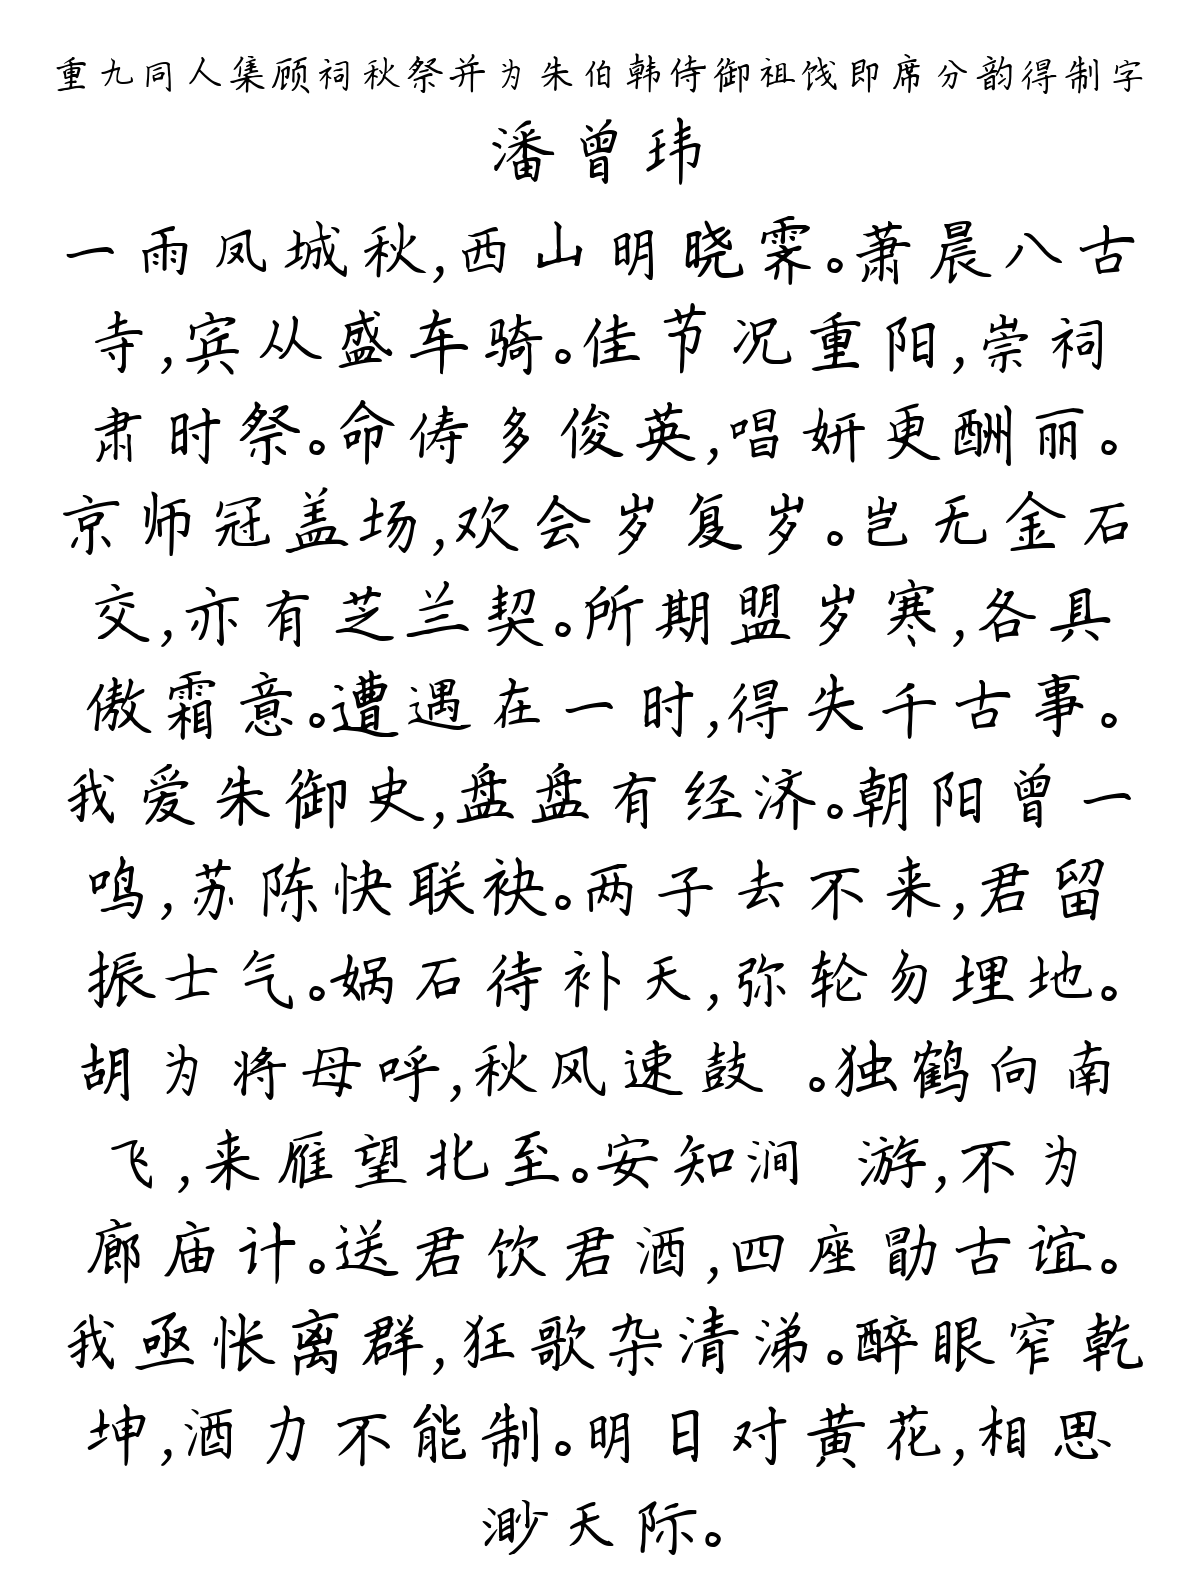 重九同人集顾祠秋祭并为朱伯韩侍御祖饯即席分韵得制字
潘曾玮
一雨凤城秋,西山明晓霁。萧晨八古
寺,宾从盛车骑。佳节况重阳,崇祠
肃时祭。命俦多俊英,唱妍更酬丽。
京师冠盖场,欢会岁复岁。岂无金石
交,亦有芝兰契。所期盟岁寒,各具
傲霜意。遭遇在一时,得失千古事。
我爱朱御史,盘盘有经济。朝阳曾一
鸣,苏陈快联袂。两子去不来,君留
振士气。娲石待补天,弥轮勿埋地。
胡为将母呼,秋风速鼓 。独鹤向南
飞,来雁望北至。安知涧 游,不为
廊庙计。送君饮君酒,四座勖古谊。
我亟怅离群,狂歌杂清涕。醉眼窄乾
坤,酒力不能制。明日对黄花,相思
渺天际。